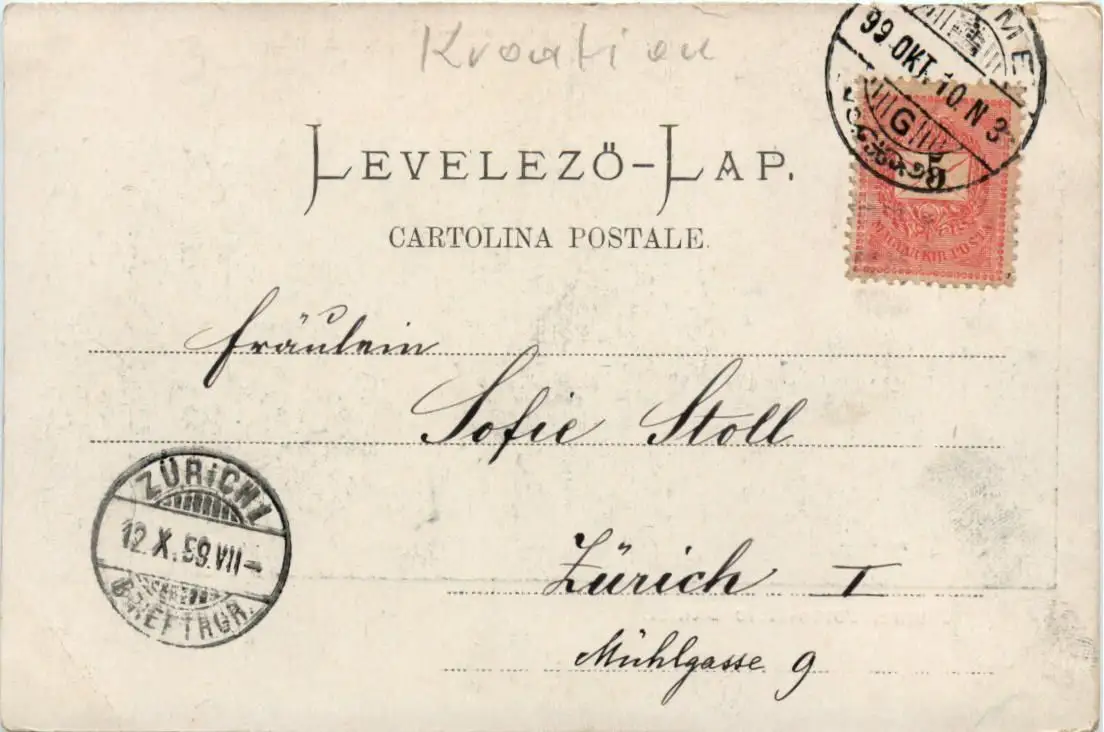 Kroatien
FIUME
99 OKT. 10. N 3
G
LEVELEZŐ-LAP.
CARTOLINA POSTALE.
5
MAGYAR KIR. POSTA
Fräulein
Sofie Stoll
ZÜRICH 1
12.X.99.VII-
BRIEFTRGR.
Zürich I
Mühlgasse 9